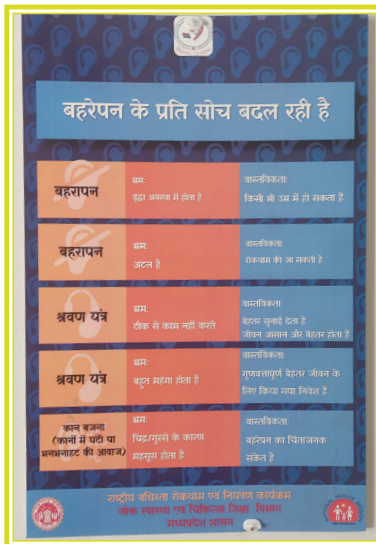 बहरेपन के प्रति सोच बदल रही है
बहरापन
भ्रम:
वृद्धा अवस्था में होता है
वास्तविकता:
किसी भी उम्र में हो सकता है
बहरापन
भ्रम:
अटल है
वास्तविकता:
रोकथाम की जा सकती है
श्रवण यंत्र
भ्रम:
ठीक से काम नहीं करते
वास्तविकता:
बेहतर सुनाई देता है
जीवन आसान और बेहतर होता है
श्रवण यंत्र
भ्रम:
बहुत महंगा होता है
वास्तविकता:
गुणवत्तापूर्ण बेहतर जीवन के
लिए किया गया निवेश है
कान बजना
(कानों में घंटी या
भनभनाहट की आवाज)
भ्रम:
चिढ़/गुस्से के कारण
महसूस होता है
वास्तविकता:
बहरेपन का चिंताजनक
संकेत है
राष्ट्रीय बधिरता रोकथाम एवं नियंत्रण कार्यक्रम
लोक स्वास्थ्य एवं चिकित्सा शिक्षा विभाग
मध्यप्रदेश शासन